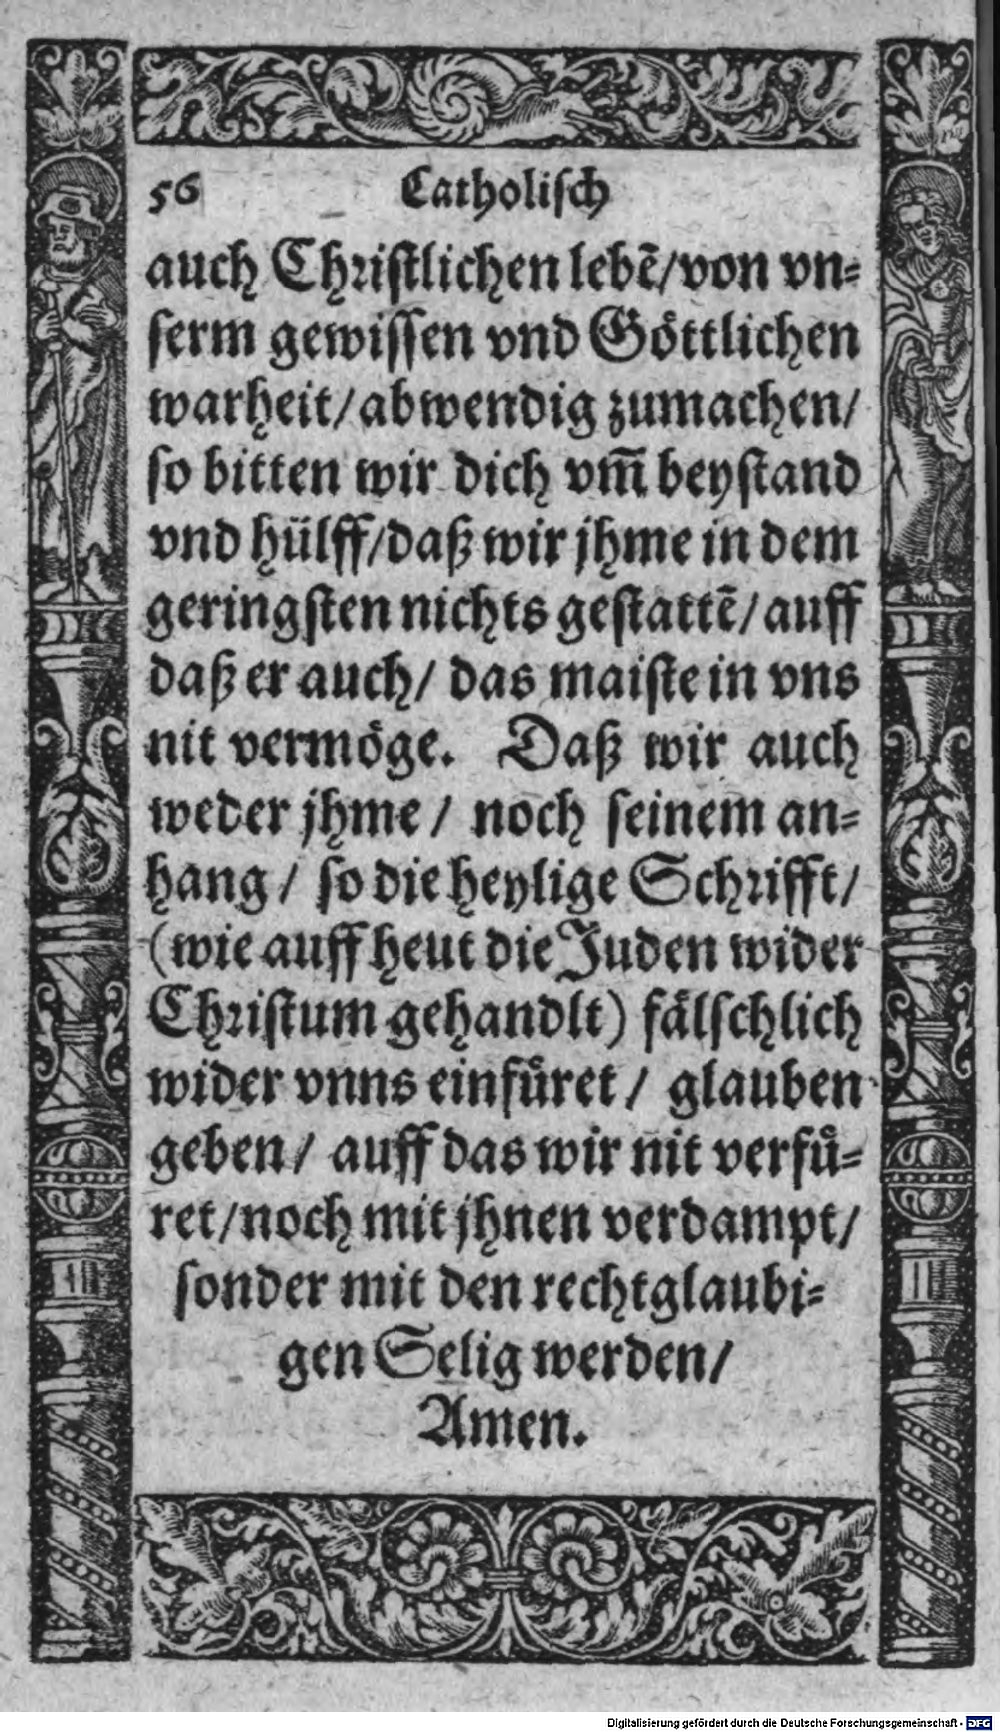 56 Catholisch
auch Christlichen lebē/von vn=
serm gewissen vnd Göttlichen
warheit/abwendig zumachen/
so bitten wir dich vm̃ beystand
vnd hülff/daß wir jhme in dem
geringsten nichts gestattē/auff
daß er auch/ das maiste in vns
nit vermöge. Daß wir auch
weder jhme/ noch seinem an=
hang/ so die heylige Schrifft/
(wie auff heut die Juden wider
Christum gehandlt) fälschlich
wider vnns einfüret/ glauben
geben/ auff das wir nit verfü=
ret/noch mit jhnen verdampt/
sonder mit den rechtglaubi=
gen Selig werden/
Amen.
Digitalisierung gefördert durch die Deutsche Forschungsgemeinschaft - DFG